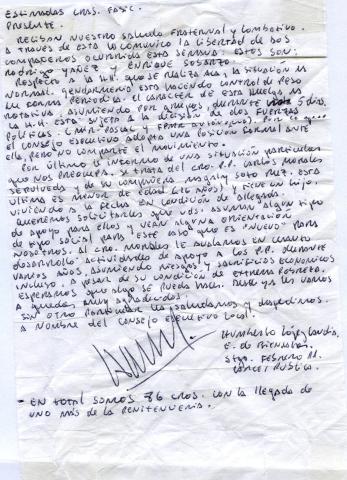 Estimadas Cras. Fasic.
Presente.
Reciban nuestro saludo fraternal y combativo.
A través de esta le comunico la libertad de dos
compañeros ocurrida esta semana. Estos son:
Rodrigo Yañez y Enrique
Respecto a la H.H. que se realiza acá, la situación es
normal. Gendarmería esta haciendo control de peso
en forma periódica. El carácter de esta huelga es
rotativa, asumiendo por grupos, durante 5 días.
La H.H. esta sujeta a la decisión de dos fuerzas
políticas.
el Consejo Ejecutivo adopta una posición formal ante
ella, pero no comparte el movimiento.
Por último le informo de una situación particular
que nos preocupa. Se trata del cro. P.P. Carlos Morales
Sepúlveda y de su compañera Magaly Soto Ruz. Esta
última es menor de edad (16 años) y tiene un hijo.
Viviendo a la fecha en condición de allegada.
Queremos solicitarles que uds. asuman algún tipo
de apoyo para ellos y vean alguna orientación
de tipo social para este caso que es "nuevo" para
nosotros. Al cro. Morales le avalamos en cuanto
desarrolló actividades de apoyo a los P.P. durante
varios años, asumiendo riesgos y sacrificios económicos
incluso, a pesar de su condición de extrema pobreza.
Esperamos que algo se pueda hacer. Desde ya les vamos
a quedar muy agradecidos.
Sin otro particular les saludamos y despedimos.
A nombre del Consejo Ejecutivo Local.
Humberto López
E. de Bienestar
Stgo. Febrero 91.
Cárcel Pública.
- En total somos 76 cros. con la llegada de
uno más de la penitenciería.